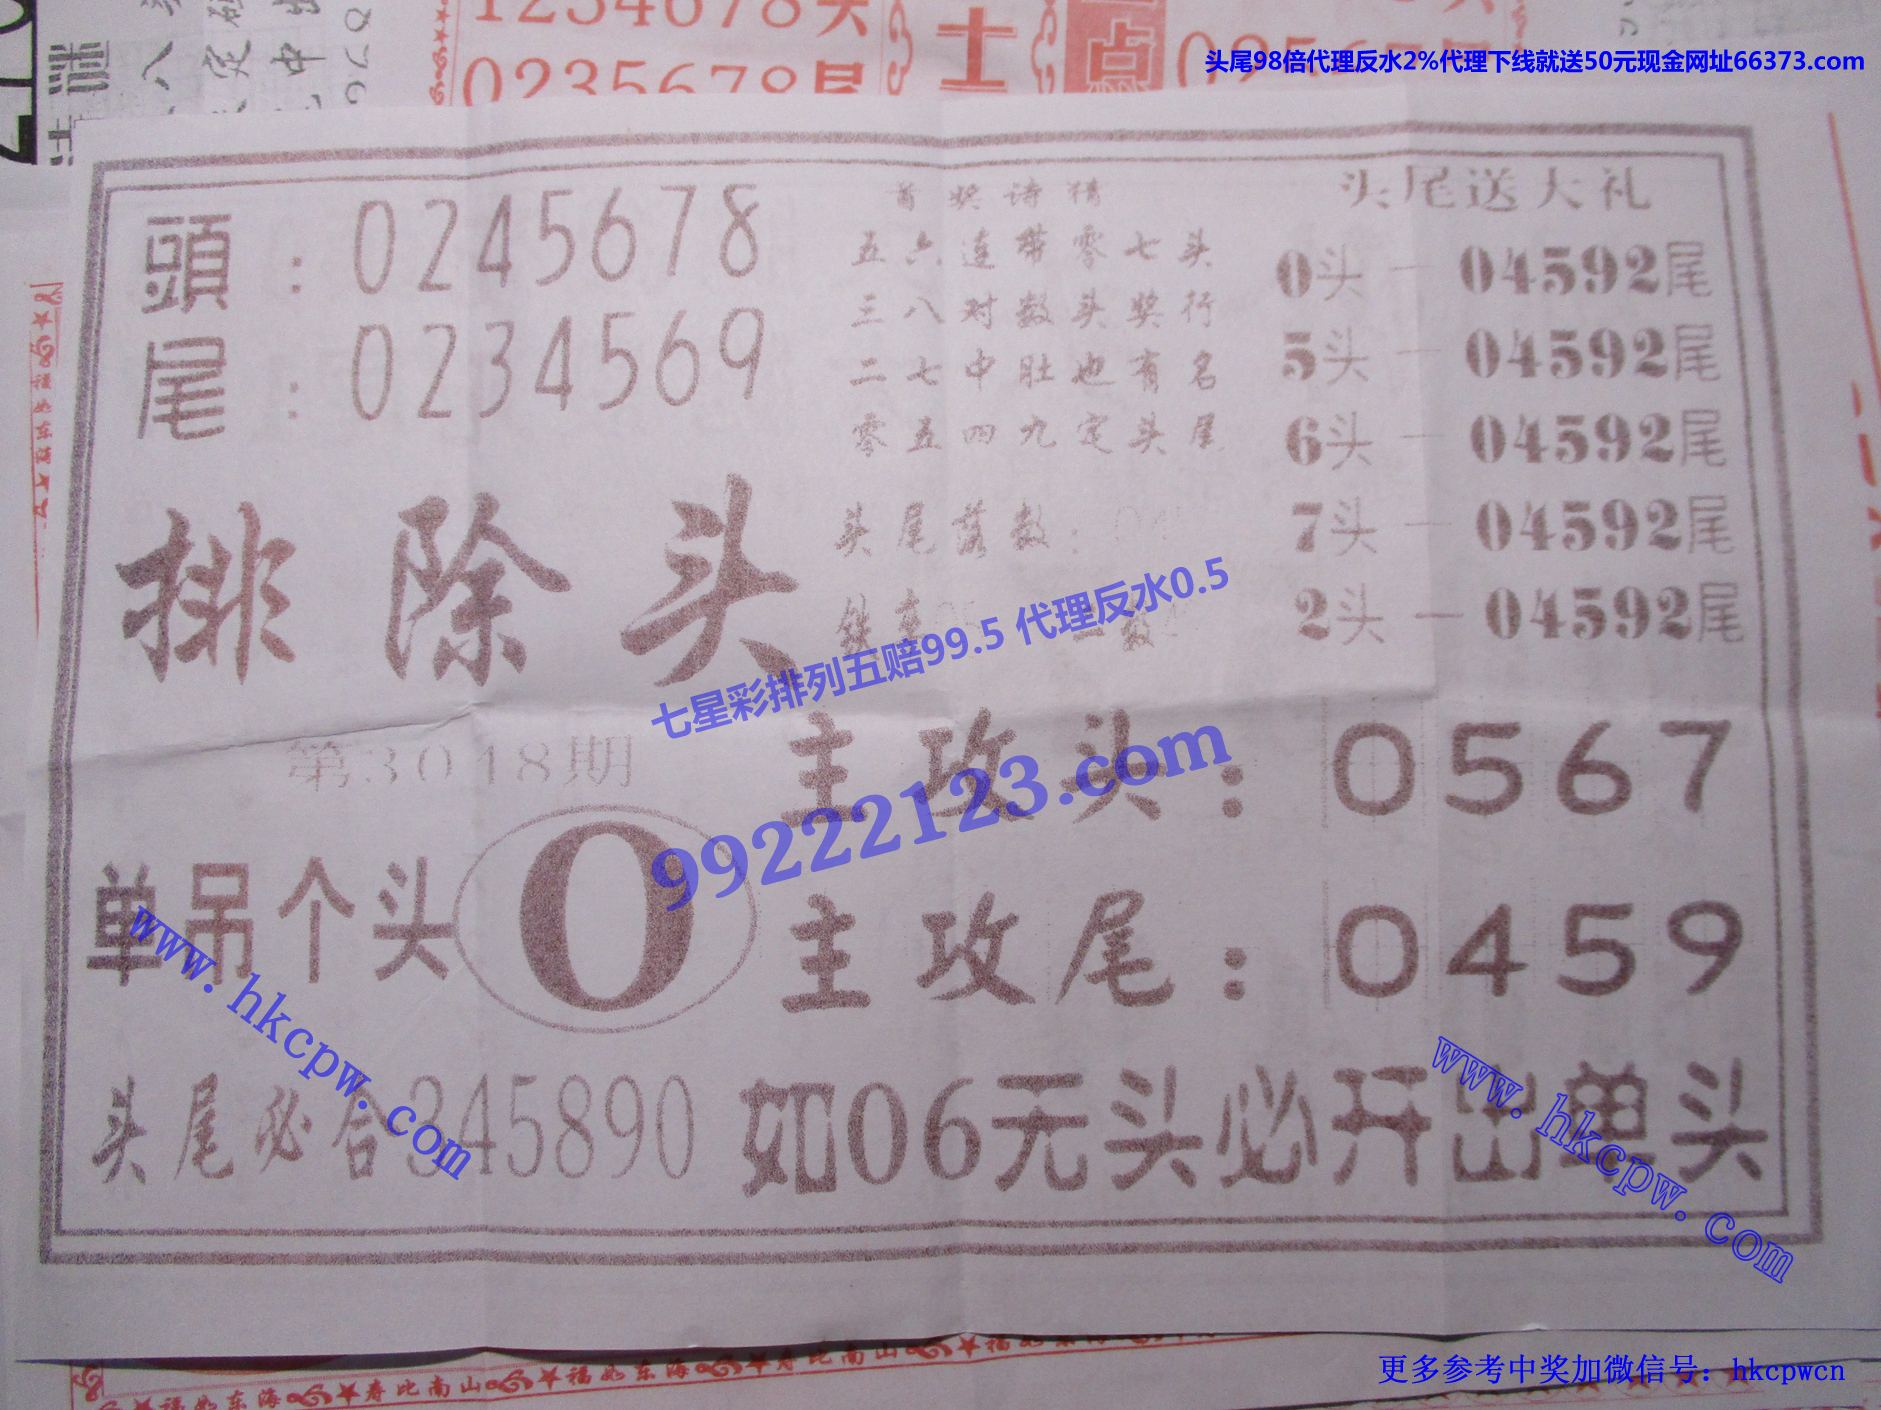 1234678头
0235678尾
头尾98倍代理反水2%代理下线就送50元现金网址66373.com
頭：0245678
尾：0234569
首奖诗猜
五六连带零七头
三八对数头奖行
二七中肚也有名
零五四九定头尾
头尾落数：04
头尾送大礼
0头－04592尾
5头－04592尾
6头－04592尾
7头－04592尾
2头－04592尾
排除头
七星彩排列五赔99.5 代理反水0.5
99222123.com
第3018期
主攻头：0567
单吊个头 0
主攻尾：0459
www.hkcpw.com
头尾必合345890 如06无头必开出单头
www.hkcpw.com
福如东海 寿比南山 福如东海 寿比南山
更多参考中奖加微信号：hkcpwcn